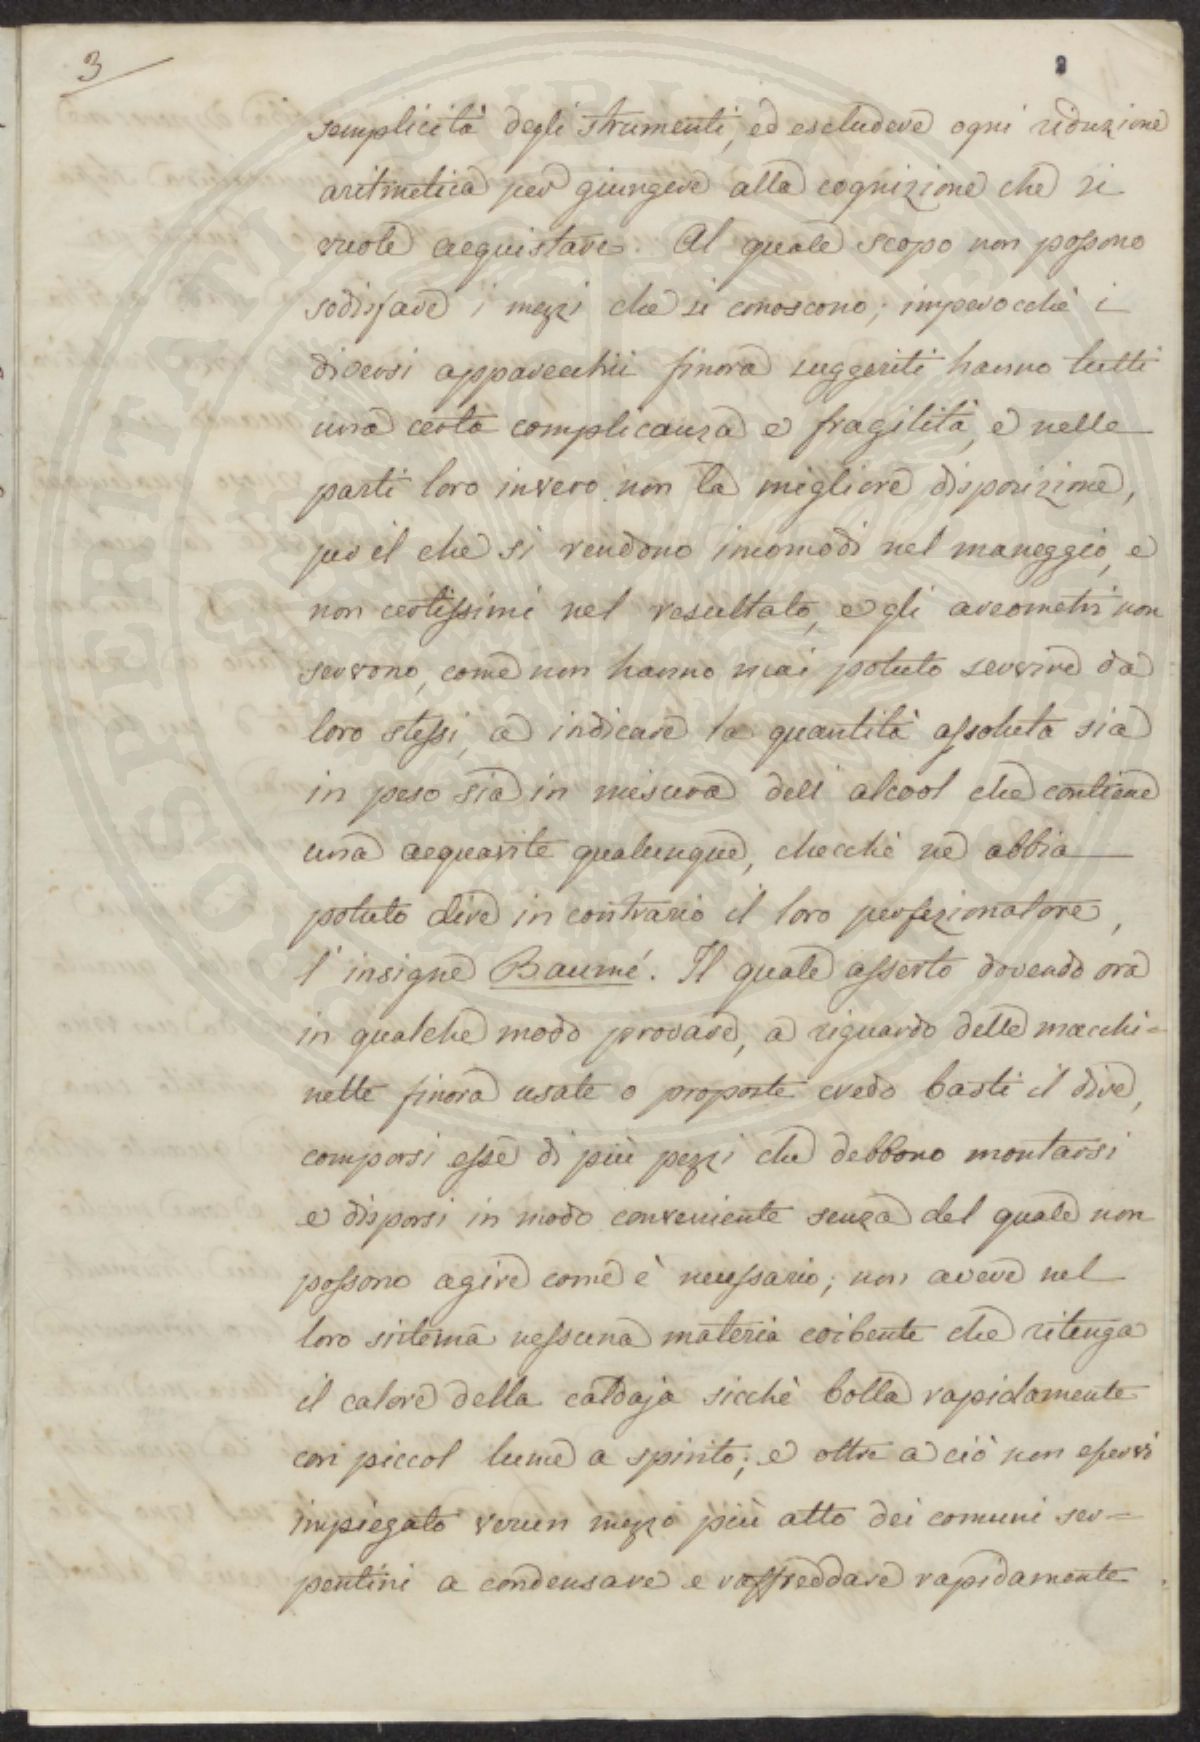 3
2
semplicità degli strumenti, ed escludere ogni riduzione
aritmetica per giungere alla cognizione che si
vuole acquistare. Al quale scopo non possono
sodisfare i mezzi che si conoscono; imperocchè i
diversi apparecchii finora suggeriti hanno tutti
una certa complicanza e fragilità, e nelle
parti loro invero non la migliore disposizione,
per il che si rendono incomodi nel maneggio, e
non certissimi nel resultato, e gli areometri non
servono, come non hanno mai potuto servire da
loro stessi, a indicare la quantità assoluta sia
in peso sia in misura dell' alcool che contiene
una acquavite qualunque, checchè ne abbia
potuto dire in contrario il loro perfezionatore,
l' insigne Baumé. Il quale asserto dovendo ora
in qualche modo provare, a riguardo delle macchi=
nette finora usate o proposte credo basti il dire,
comporsi esse di più pezzi che debbono montarsi
e disporsi in modo conveniente senza del quale non
possono agire come è necessario; non avere nel
loro sistema nessuna materia coibente che ritenga
il calore della caldaja sicchè bolla rapidamente
con piccol lume a spirito; e oltre a ciò non esservi
impiegato verun mezzo più atto dei comuni ser=
pentini a condensare e raffreddare rapidamente
PROSPERITATI PUBLICAE